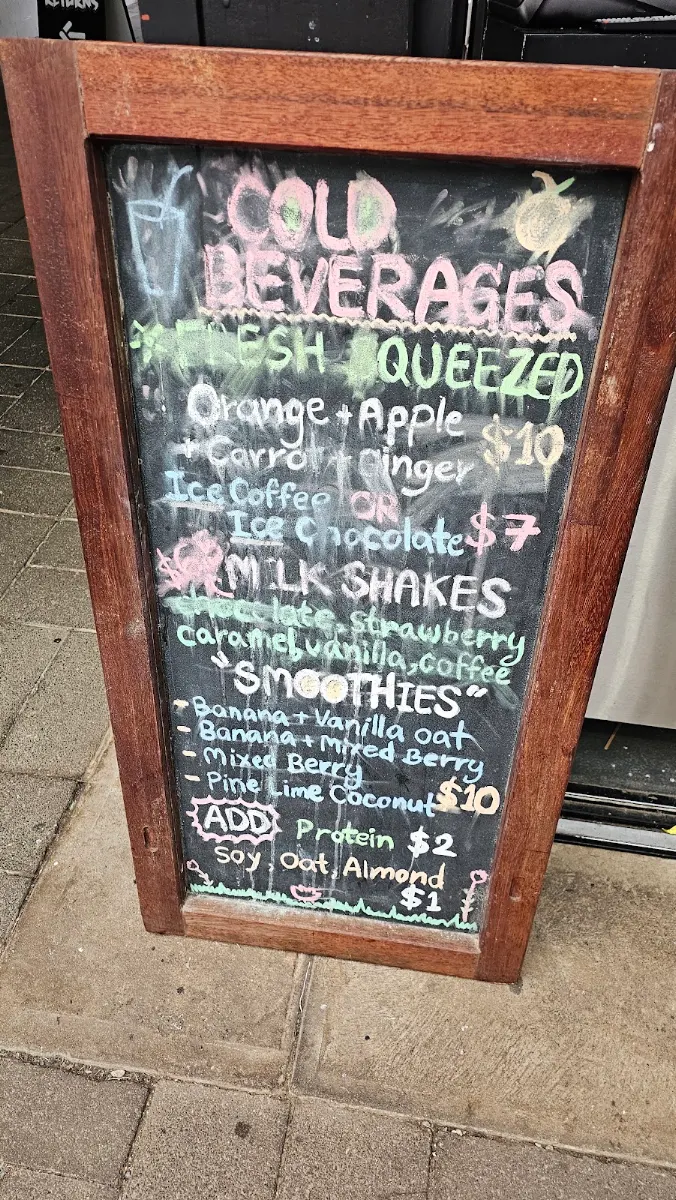 RETURNS
COLD
BEVERAGES
FRESH SQUEEZED
Orange + Apple
+ Carrot + Ginger $10
Ice Coffee OR
Ice Chocolate $7
MILK SHAKES
chocolate, strawberry
caramel, vanilla, coffee
"SMOOTHIES"
- Banana + Vanilla oat
- Banana + Mixed Berry
- Mixed Berry
- Pine Lime Coconut $10
ADD Protein $2
Soy, Oat, Almond
$1